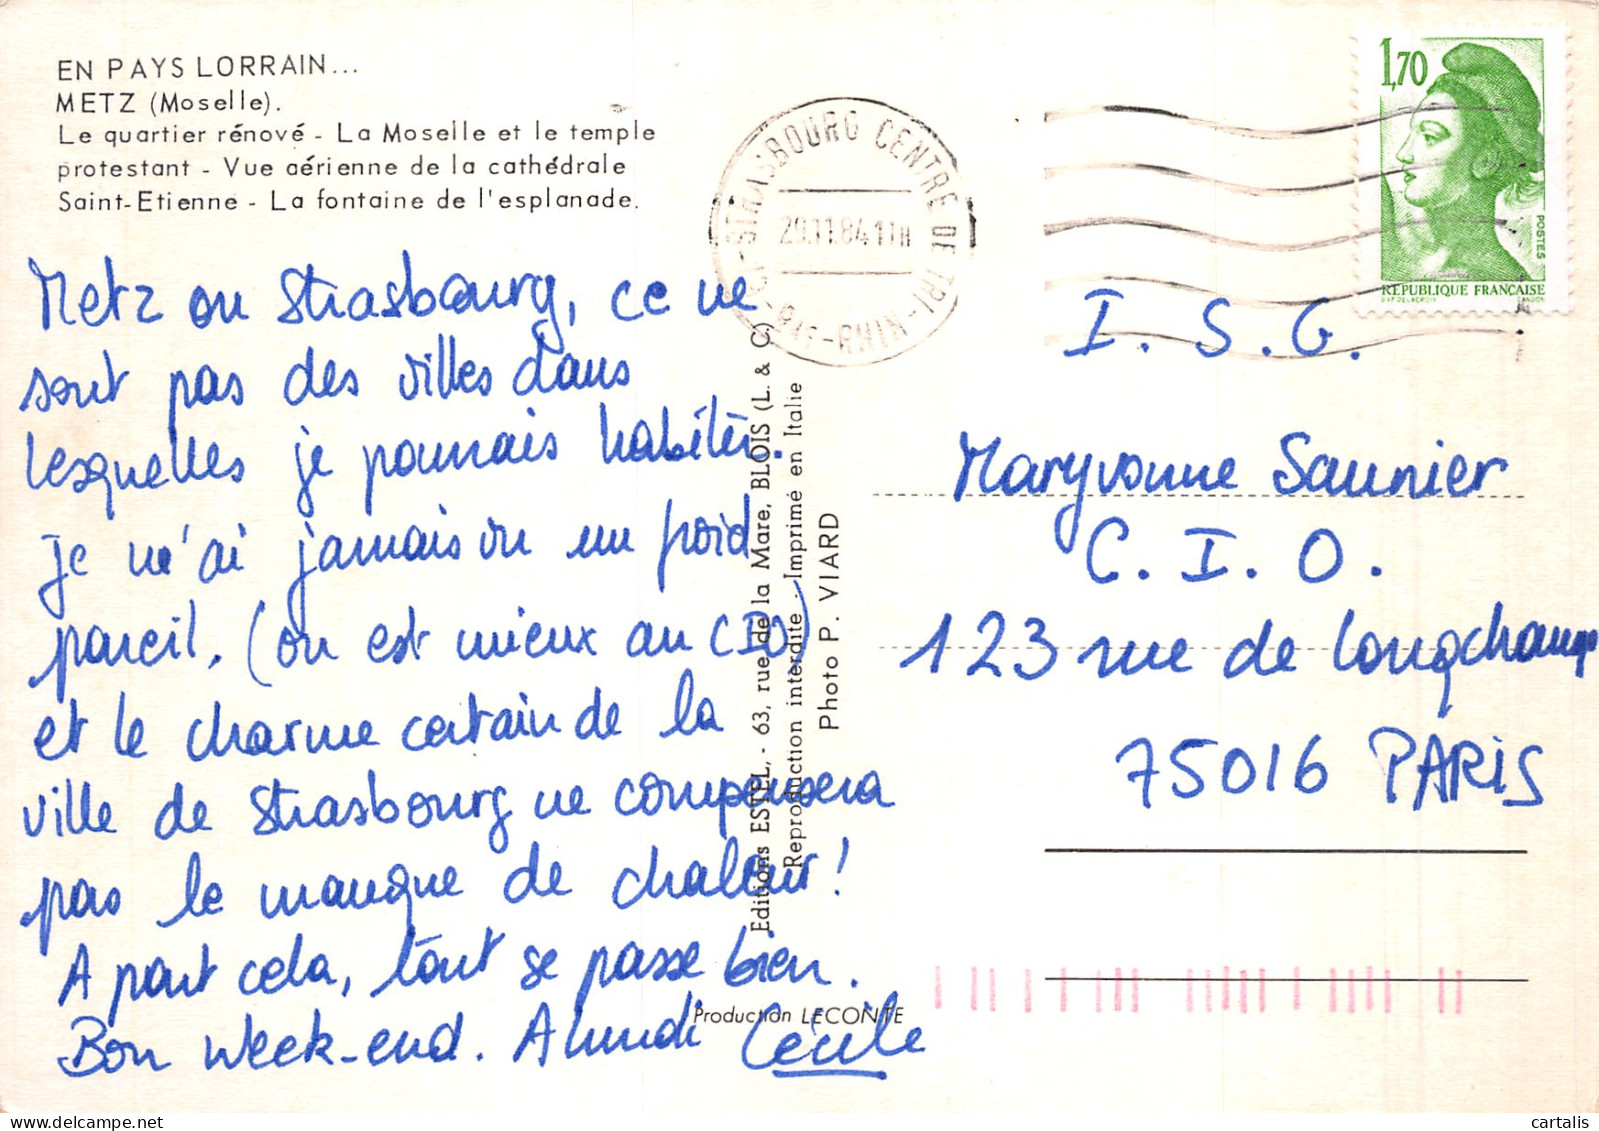 EN PAYS LORRAIN...
METZ (Moselle).
Le quartier rénové - La Moselle et le temple
protestant - Vue aérienne de la cathédrale
Saint-Etienne - La fontaine de l'esplanade.
Metz ou Strasbourg, ce ne
sont pas des villes dans
lesquelles je pourrais habiter.
Je n'ai jamais vu un froid
pareil. (on est mieux au CIO)
et le charme certain de la
ville de Strasbourg ne compensera
pas le manque de chaleur!
A part cela, tout se passe bien.
Bon week-end. A lundi Cécile
Editions ESTEL, - 63, rue de la Mare, BLOIS (L. & C)
Reproduction interdite - Imprimé en Italie
Photo P. VIARD
Production LECONTE
STRASBOURG CENTRE DE TRI
29.11.84 11H
BAS-RHIN
1,70
POSTES
REPUBLIQUE FRANÇAISE
D'AP. DELACROIX GANDON
I. S. G.
Maryvonne Saunier
C. I. O.
123 rue de Longchamp
75016 PARIS
cartalis